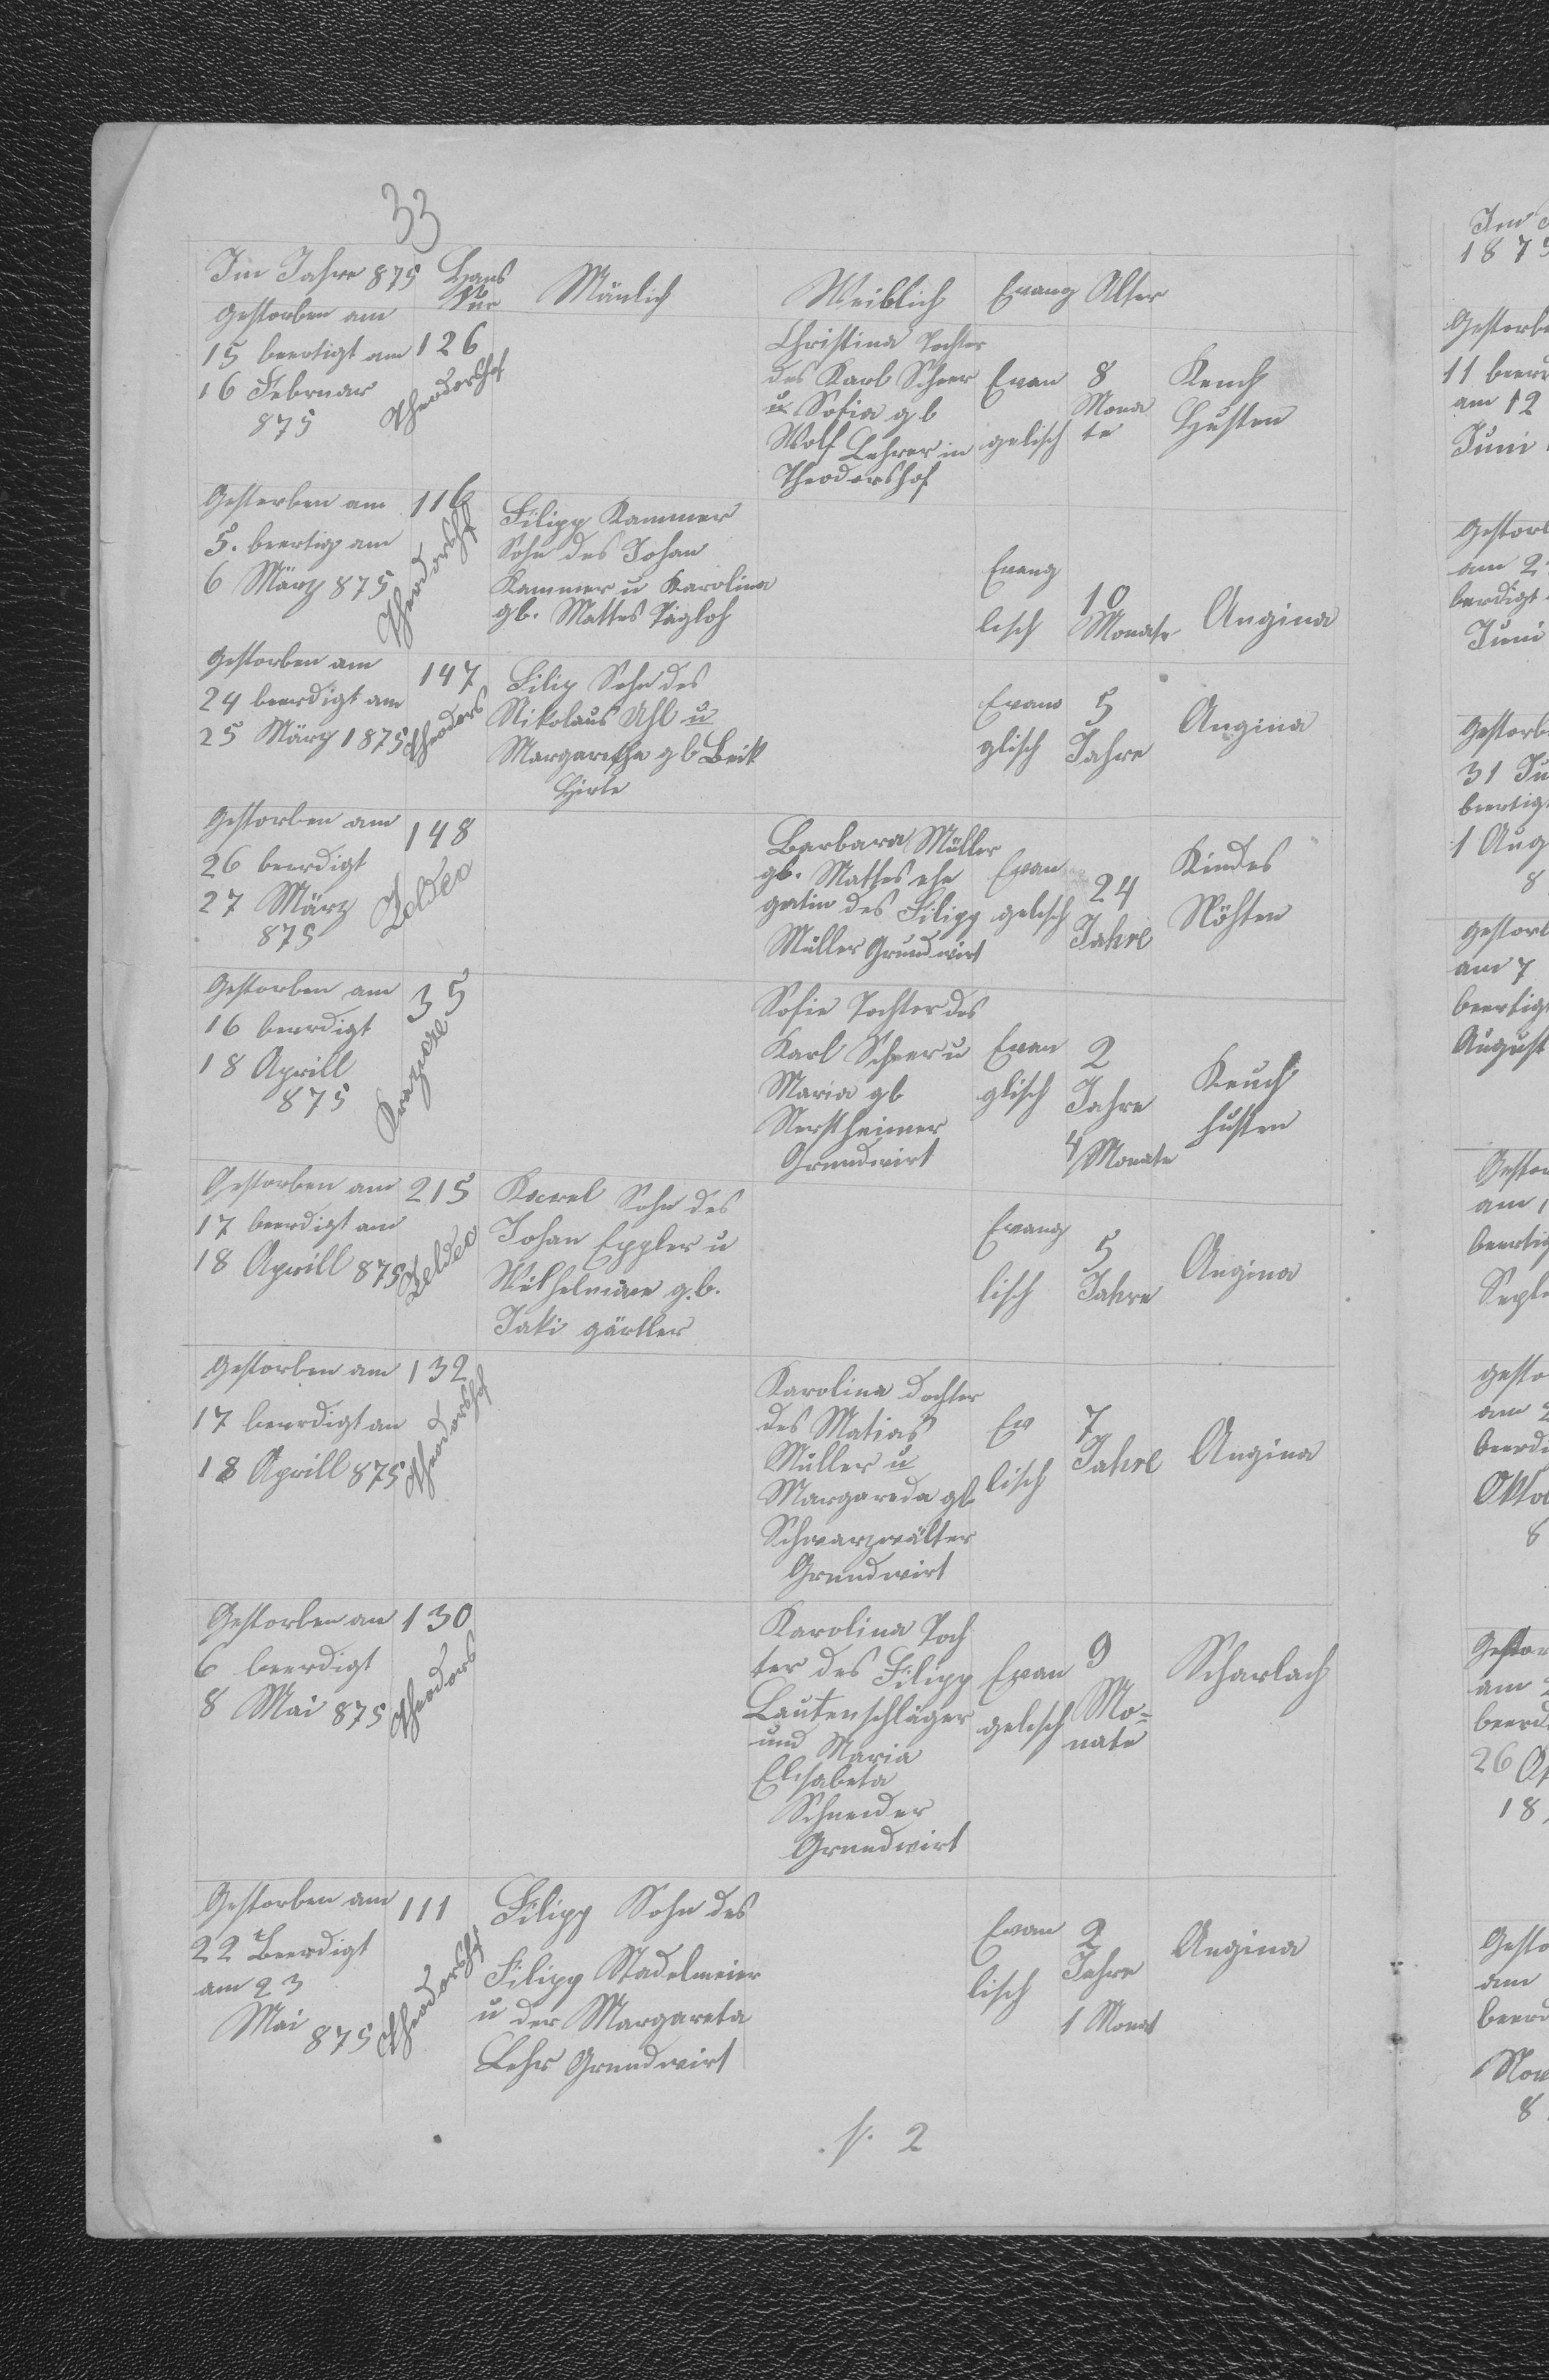 33
Im Jahre 875 Haus Nur Mänlich Weiblich Evang Alter
Gestorben am
15 beertigt am
16 Februar
875
126
Theodorshof
Christina Tochter
des Karl Scheer
u Sofia gb
Wolf Lehrer in
Theodorshof
Evan
gelisch
8
Mona
te
Keuch
Husten
Gestorben am
5. beertig am
6 März 875
116
Theodorshof
Filipp Kammer
Sohn des Johan
Kammer u Karolina
gb. Mattes Tägloh
Evang
lisch
10
Monate
Angina
Gestorben am
24 beerdigt am
25 März 1875
147
Theodors
Filip Sohn des
Nikolaus Uhl u
Margaretha gb Beik
Hirte
Evan
glisch
5
Jahre
Angina
Gestorben am
26 beerdigt
27 März
875
148
Zeldec
Barbara Müller
gb. Mattes ehe
gatin des Filipp
Müller Grundwirt
Evan
gelisch
24
Jahre
Kindes
Nöhten
Gestorben am
16 beerdigt
18 Aprill
875
35
Sofie Tochter des
Karl Scheer u
Maria gb
Nerstheimer
Grundwirt
Evan
glisch
2
Jahre
4 Monate
Keuch
husten
Gestorben am
17 beerdigt am
18 Aprill 875
215
Zeldec
Karel Sohn des
Johan Eppler u
Wilhelmine g.b.
Jaki gärtler
Evang
lisch
5
Jahre
Angina
Gestorben am
17 beerdigt an
18 Aprill 875
132
Theodorshof
Karolina dochter
des Matias
Müller u
Margareda gb
Schwarzwälter
Grundwirt
Ev
lisch
7
Jahre
Angina
Gestorben an
6 beerdigt
8 Mai 875
130
Theodors
Karolina Toch
ter des Filipp
Lautenschläger
und Maria
Elisabeta
Schneider
Grundwirt
Evan
gelisch
9
Mo=
nate
Scharlach
Gestorben am
22 Beerdigt
am 23
Mai
875
111
Theodorshof
Filipp Sohn des
Filipp Stadelmeier
u der Margareta
Lehr Grundwirt
Evan
lisch
2
Jahre
1 Monat
Angina
/. 2
187
Gestorb
11 beer
am 12
Juni
Gestorb
am 2
berdigt
Juni
Gestorb
31 Ju
beertig
1 Aug
8
Gestorb
am 7
beertigt
August
Gestor
am 1
beertig
Septe
gesto
am 2
beerd
Oktob
8
Gestor
am 2
beerd
26 Ok
18
Gesto
am
beerd
Nov
8